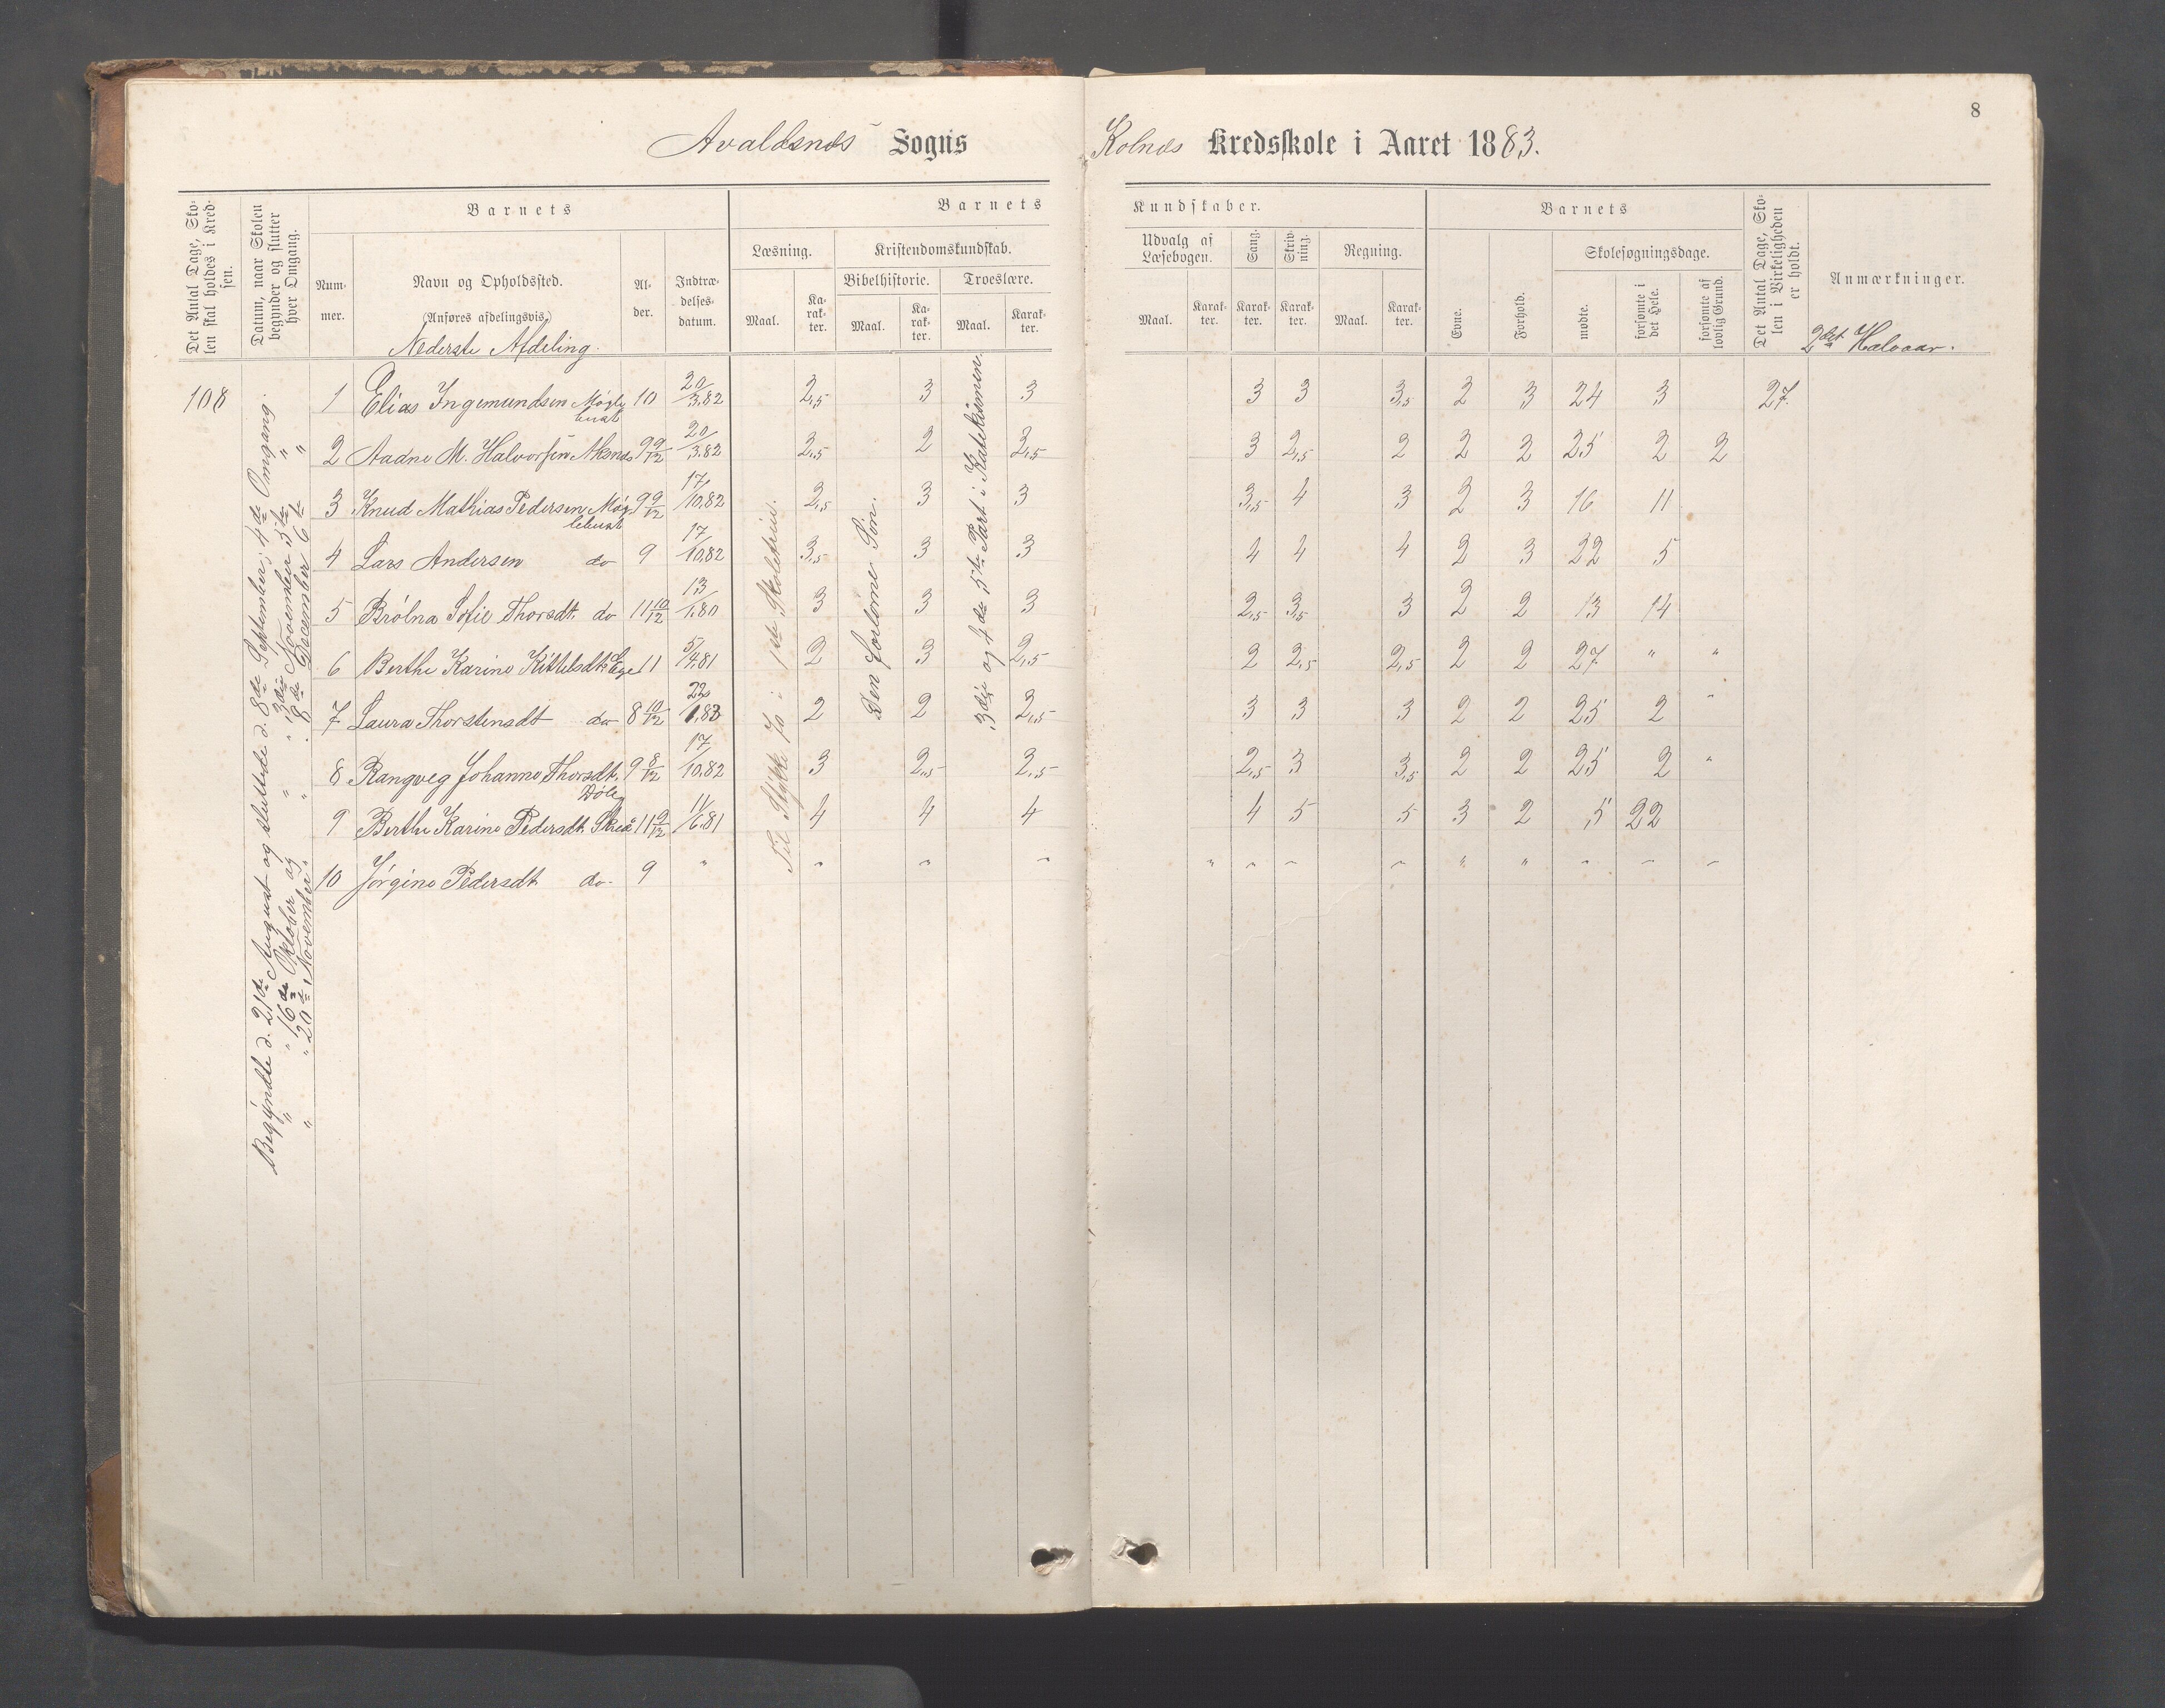 8
Avaldsnes Sogns Kolnes Kredsskole i Aaret 1883.
Det Antal Dage, Sko-
len skal holdes i Kred-
sen.
Datum, naar Skolen
begynder og slutter
hver Omgang.
Barnets
Num-
mer.
Navn og Opholdssted.
(Anføres afdelingsvis.)
Nederste Afdeling.
Al-
der.
Indtræ-
delses-
datum.
Barnets Kundskaber.
Læsning.
Maal.
Ka-
rak-
ter.
Kristendomskundskab.
Bibelhistorie.
Maal.
Ka-
rak-
ter.
Troeslære.
Maal.
Karak-
ter.
Udvalg af
Læsebogen.
Maal.
Karak-
ter.
Sang.
Karak-
ter.
Skriv-
ning.
Karak-
ter.
Regning.
Maal.
Karak-
ter.
Barnets
Evne.
Forhold.
Skolesøgningsdage.
mødte.
forsømte i
det Hele.
forsømte af
lovlig Grund.
Det Antal Dage, Sko-
len i Virkeligheden
er holdt.
Anmærkninger.
2det Halvaar.
108
Begyndte d. 21de August og sluttede d. 8de September, 4de Omgang.
" " 16de Oktober og " " 3die November 5te "
" " 20de November " " 8de December 6te "
Til Stykke 70 i 1ste Skoletrin.
Den forlorne Søn.
3die og 4de 5te Part i Katekismen.
1 Elias Ingemundsen Møgle- 10 20/3.82 2,5 3 3 3 3 3,5 2 3 24 3 27.
bust
2 Aadne M. Halvorsen Aksnes 9 9/12 20/3.82 2,5 2 2,5 3 2,5 2 2 2 25 2 2
3 Knud Mathias Pedersen Møg- 9 9/12 17/10.82 2,5 3 3 3,5 4 3 2 3 16 11
lebust
4 Lars Andersen do 9 17/10.82 3,5 3 3 4 4 4 2 3 22 5
5 Brólna Sofie Thorsdt. do 11 10/12 13/1.80 3 3 3 2,5 3,5 3 2 2 13 14
6 Berthe Karine Kittelsdt. Ege 11 5/4.81 2 3 2,5 2 2,5 2,5 2 2 27 " "
7 Laura Thorstensdt do 8 10/12 22/1.83 2 2 2,5 3 3 3 2 2 25 2 "
8 Rangveg Johanne Thorsdt. 9 8/12 17/10.82 3 2,5 2,5 2,5 3 3,5 2 2 25 2 "
9 Berthe Karine Pedersdt. Skeie 11 9/12 11/6.81 4 4 4 4 5 5 3 2 5 22
10 Jørgine Pedersdt do. 9 " " " " " " " " " " " " "